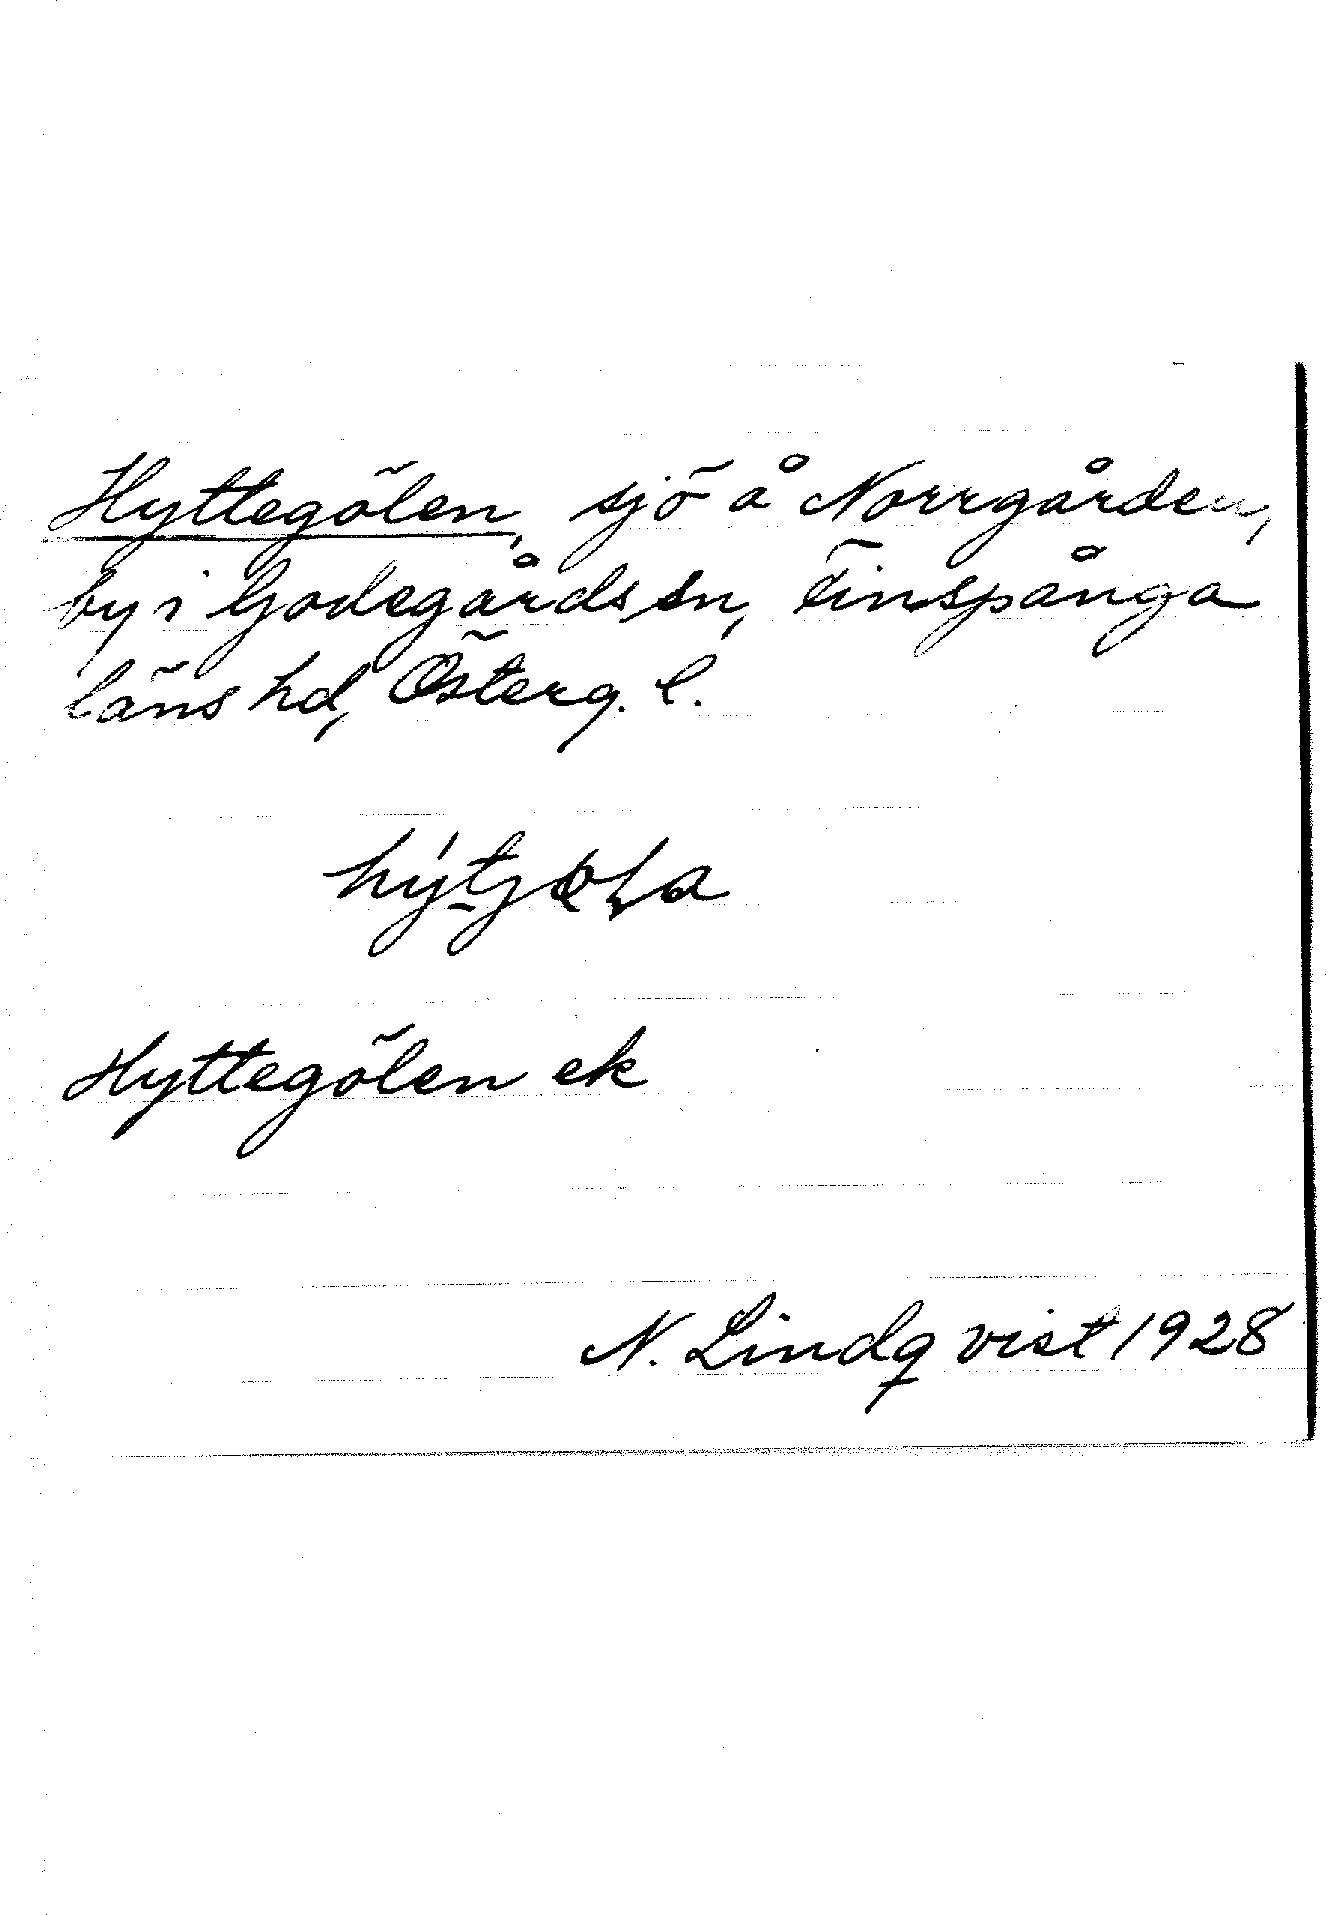 Hyttegölen, sjö å Norrgården,
by i Godegårds sn, Finspånga
läns hd, Österg. l.
Hyttegölen ek
N. Lindqvist 1928